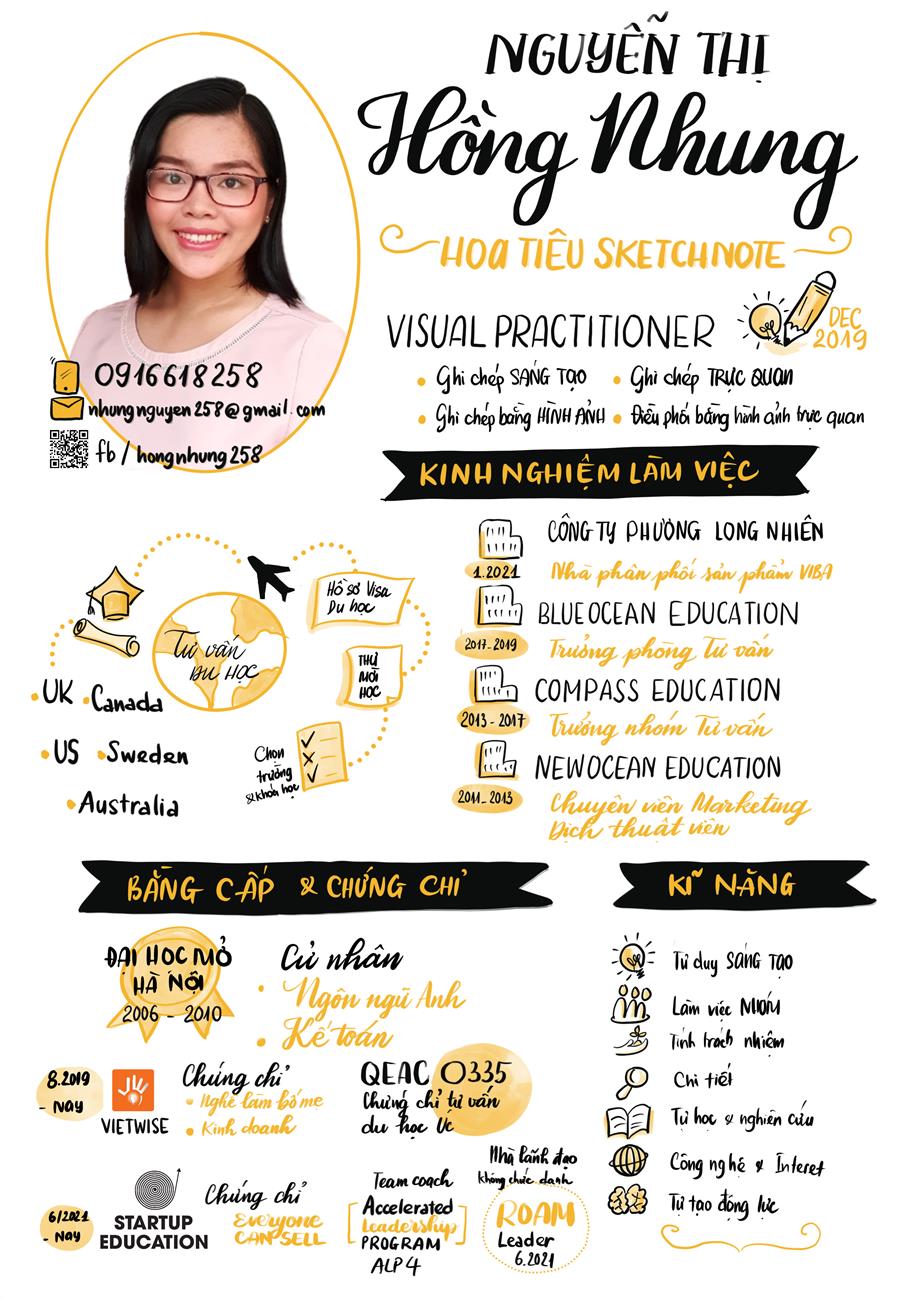 NGUYỄN THỊ
Hồng Nhung
HOA TIÊU SKETCHNOTE
VISUAL PRACTITIONER
DEC
2019
• Ghi chép SÁNG TẠO • Ghi chép TRỰC QUAN
• Ghi chép bằng HÌNH ẢNH • Điều phối bằng hình ảnh trực quan
0916618258
nhungnguyen258@gmail.com
fb / hongnhung258
KINH NGHIỆM LÀM VIỆC
CÔNG TY PHƯỜNG LONG NHIÊN
1.2021
Nhà phân phối sản phẩm VIBA
BLUEOCEAN EDUCATION
2017-2019
Trưởng phòng Tư vấn
COMPASS EDUCATION
2013 - 2017
Trưởng nhóm Tư vấn
NEWOCEAN EDUCATION
2011-2013
Chuyên viên Marketing
Dịch thuật viên
Tư vấn
DU HỌC
Hồ sơ Visa
Du học
THƯ
MỜI
HỌC
Chọn
trường
& khóa học
• UK • Canada
• US • Sweden
• Australia
BẰNG CẤP & CHỨNG CHỈ
ĐẠI HỌC MỎ
HÀ NỘI
2006 - 2010
Cử nhân
• Ngôn ngữ Anh
• Kế toán
8.2019
- NAY
VIETWISE
Chứng chỉ
• Nghề làm bố mẹ
• Kinh doanh
QEAC 0335
Chứng chỉ tư vấn
du học Úc
6/2021
- NAY
STARTUP
EDUCATION
Chứng chỉ
EVERYONE
CAN SELL
Team coach
Accelerated
Leadership
PROGRAM
ALP4
Nhà lãnh đạo
không chức danh
ROAM
Leader
6.2021
KĨ NĂNG
Tư duy SÁNG TẠO
Làm việc NHÓM
Tinh trách nhiệm
Chi tiết
Tự học & nghiên cứu
Công nghệ & Interet
Tự tạo động lực